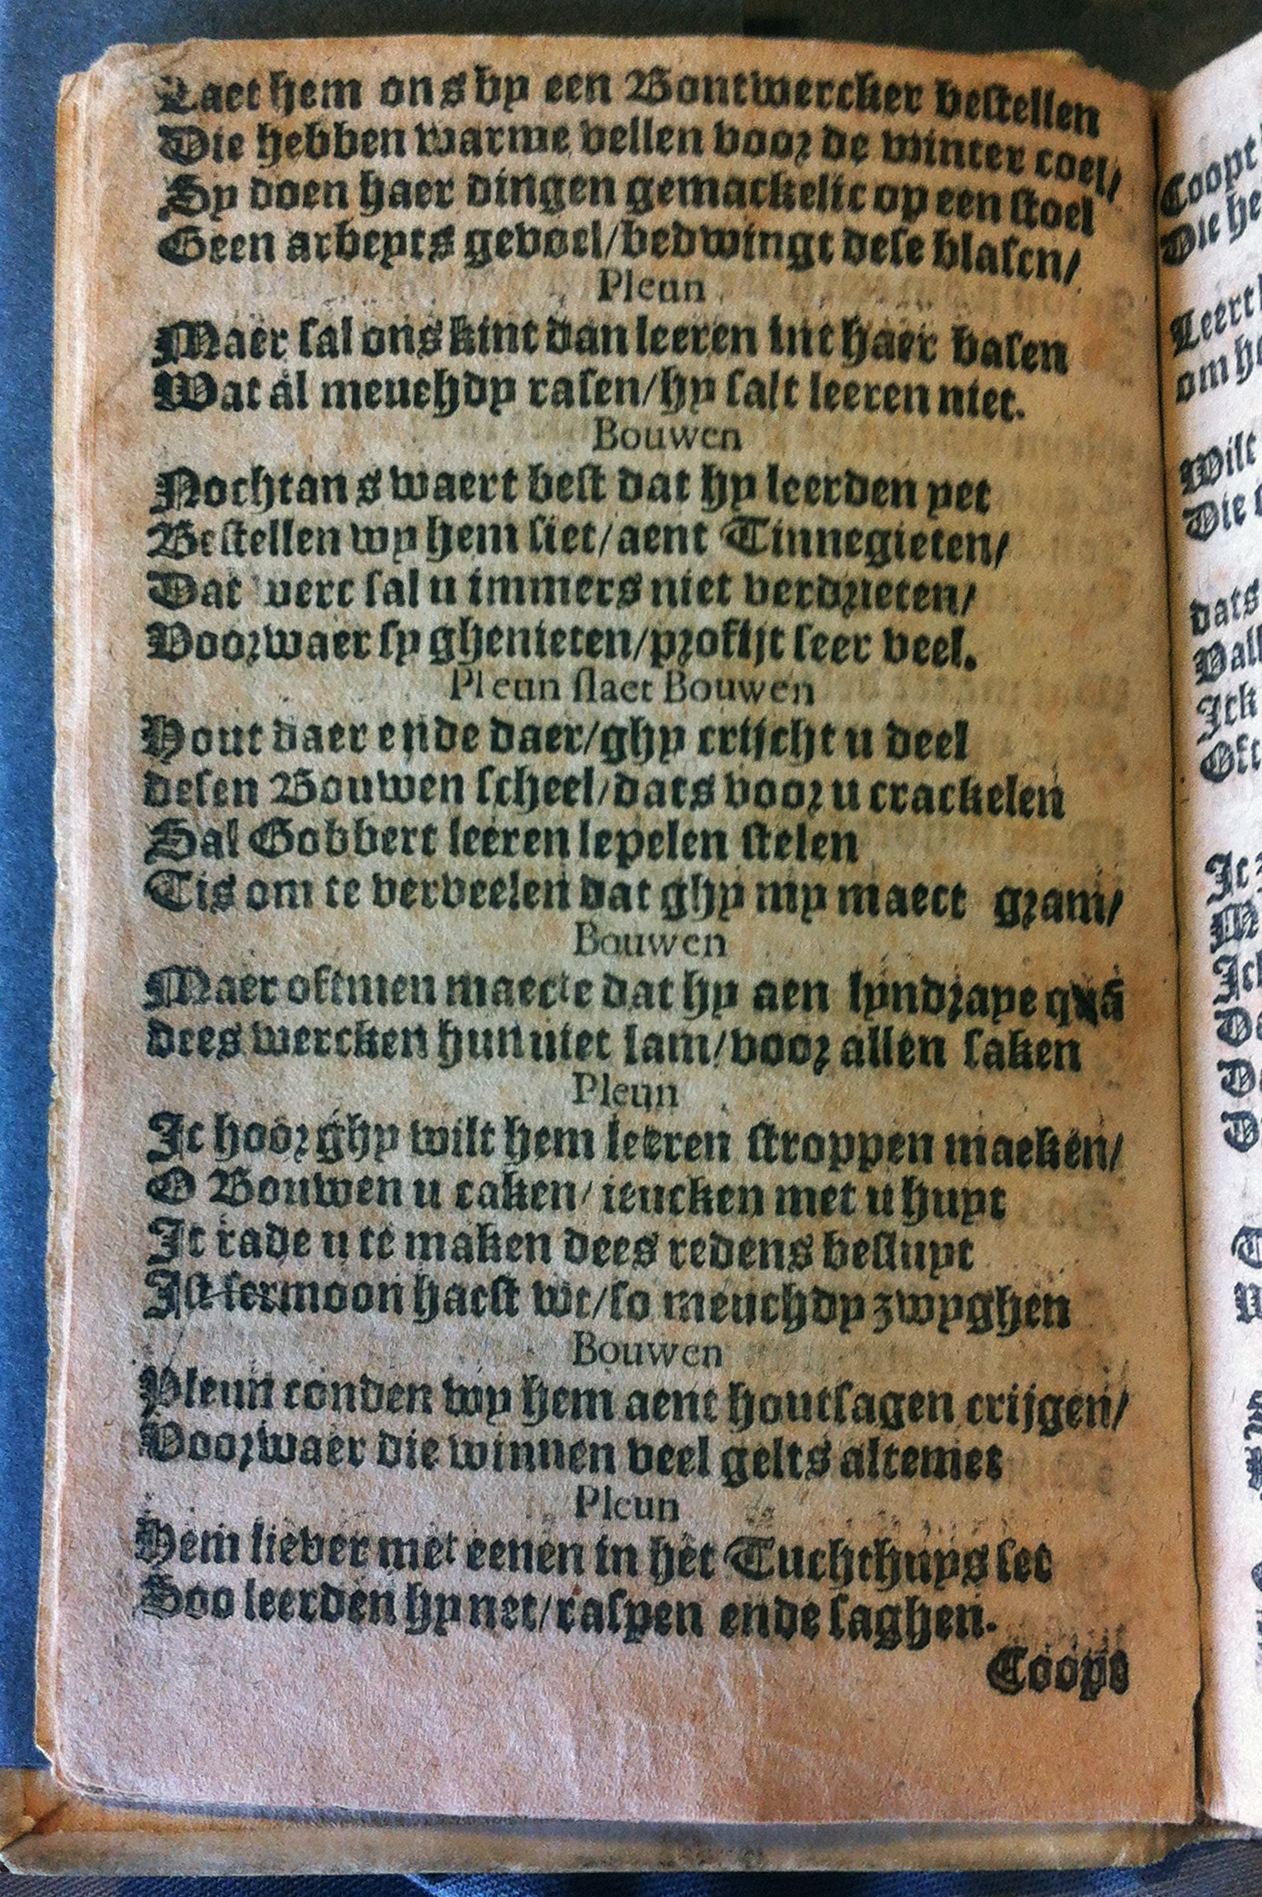 Laet hem ons by een Bontwercker bestellen
Die hebben warme vellen voor de winter coel/
Sy doen haer dingen gemackelic op een stoel
Geen arbeyts gevoel/bedwingt dese blasen/
Pleun
Maer sal ons kint dan leeren int haer basen
Wat al meuchdy rasen/hy salt leeren niet.
Bouwen
Nochtans waert best dat hy leerden yet
Bestellen wy hem siet/aent Tinnegieten/
Dat werc sal u immers niet verdrieten/
Voorwaer sy ghenieten/profijt seer veel.
Pleun slaet Bouwen
Hout daer ende daer/ghy crijcht u deel
desen Bouwen scheel/dats voor u crackelen
Sal Gobbert leeren lepelen stelen
Tis om te verveelen dat ghy my maect gram/
Bouwen
Maer oftmen maecte dat hy aen lyndraye quā
dees wercken hun niet lam/voor allen saken
Pleun
Ic hoor ghy wilt hem leeren stroppen maeken/
O Bouwen u caken/ ieucken met u huyt
Ic rade u te maken dees redens besluyt
Ist sermoon haest wt/so meuchdy zwyghen
Bouwen
Pleun conden wy hem aent houtsagen crijgen/
Voorwaer die winnen veel gelts altemet
Pleun
Hem liever met eenen in het Tuchthuys set
Soo leerden hy net/raspen ende saghen.
Coopt
Coopt
Die he
Leert
om ho
Wilt
Die
dats
Vall
Ick
Oft
Ic
M
Ick